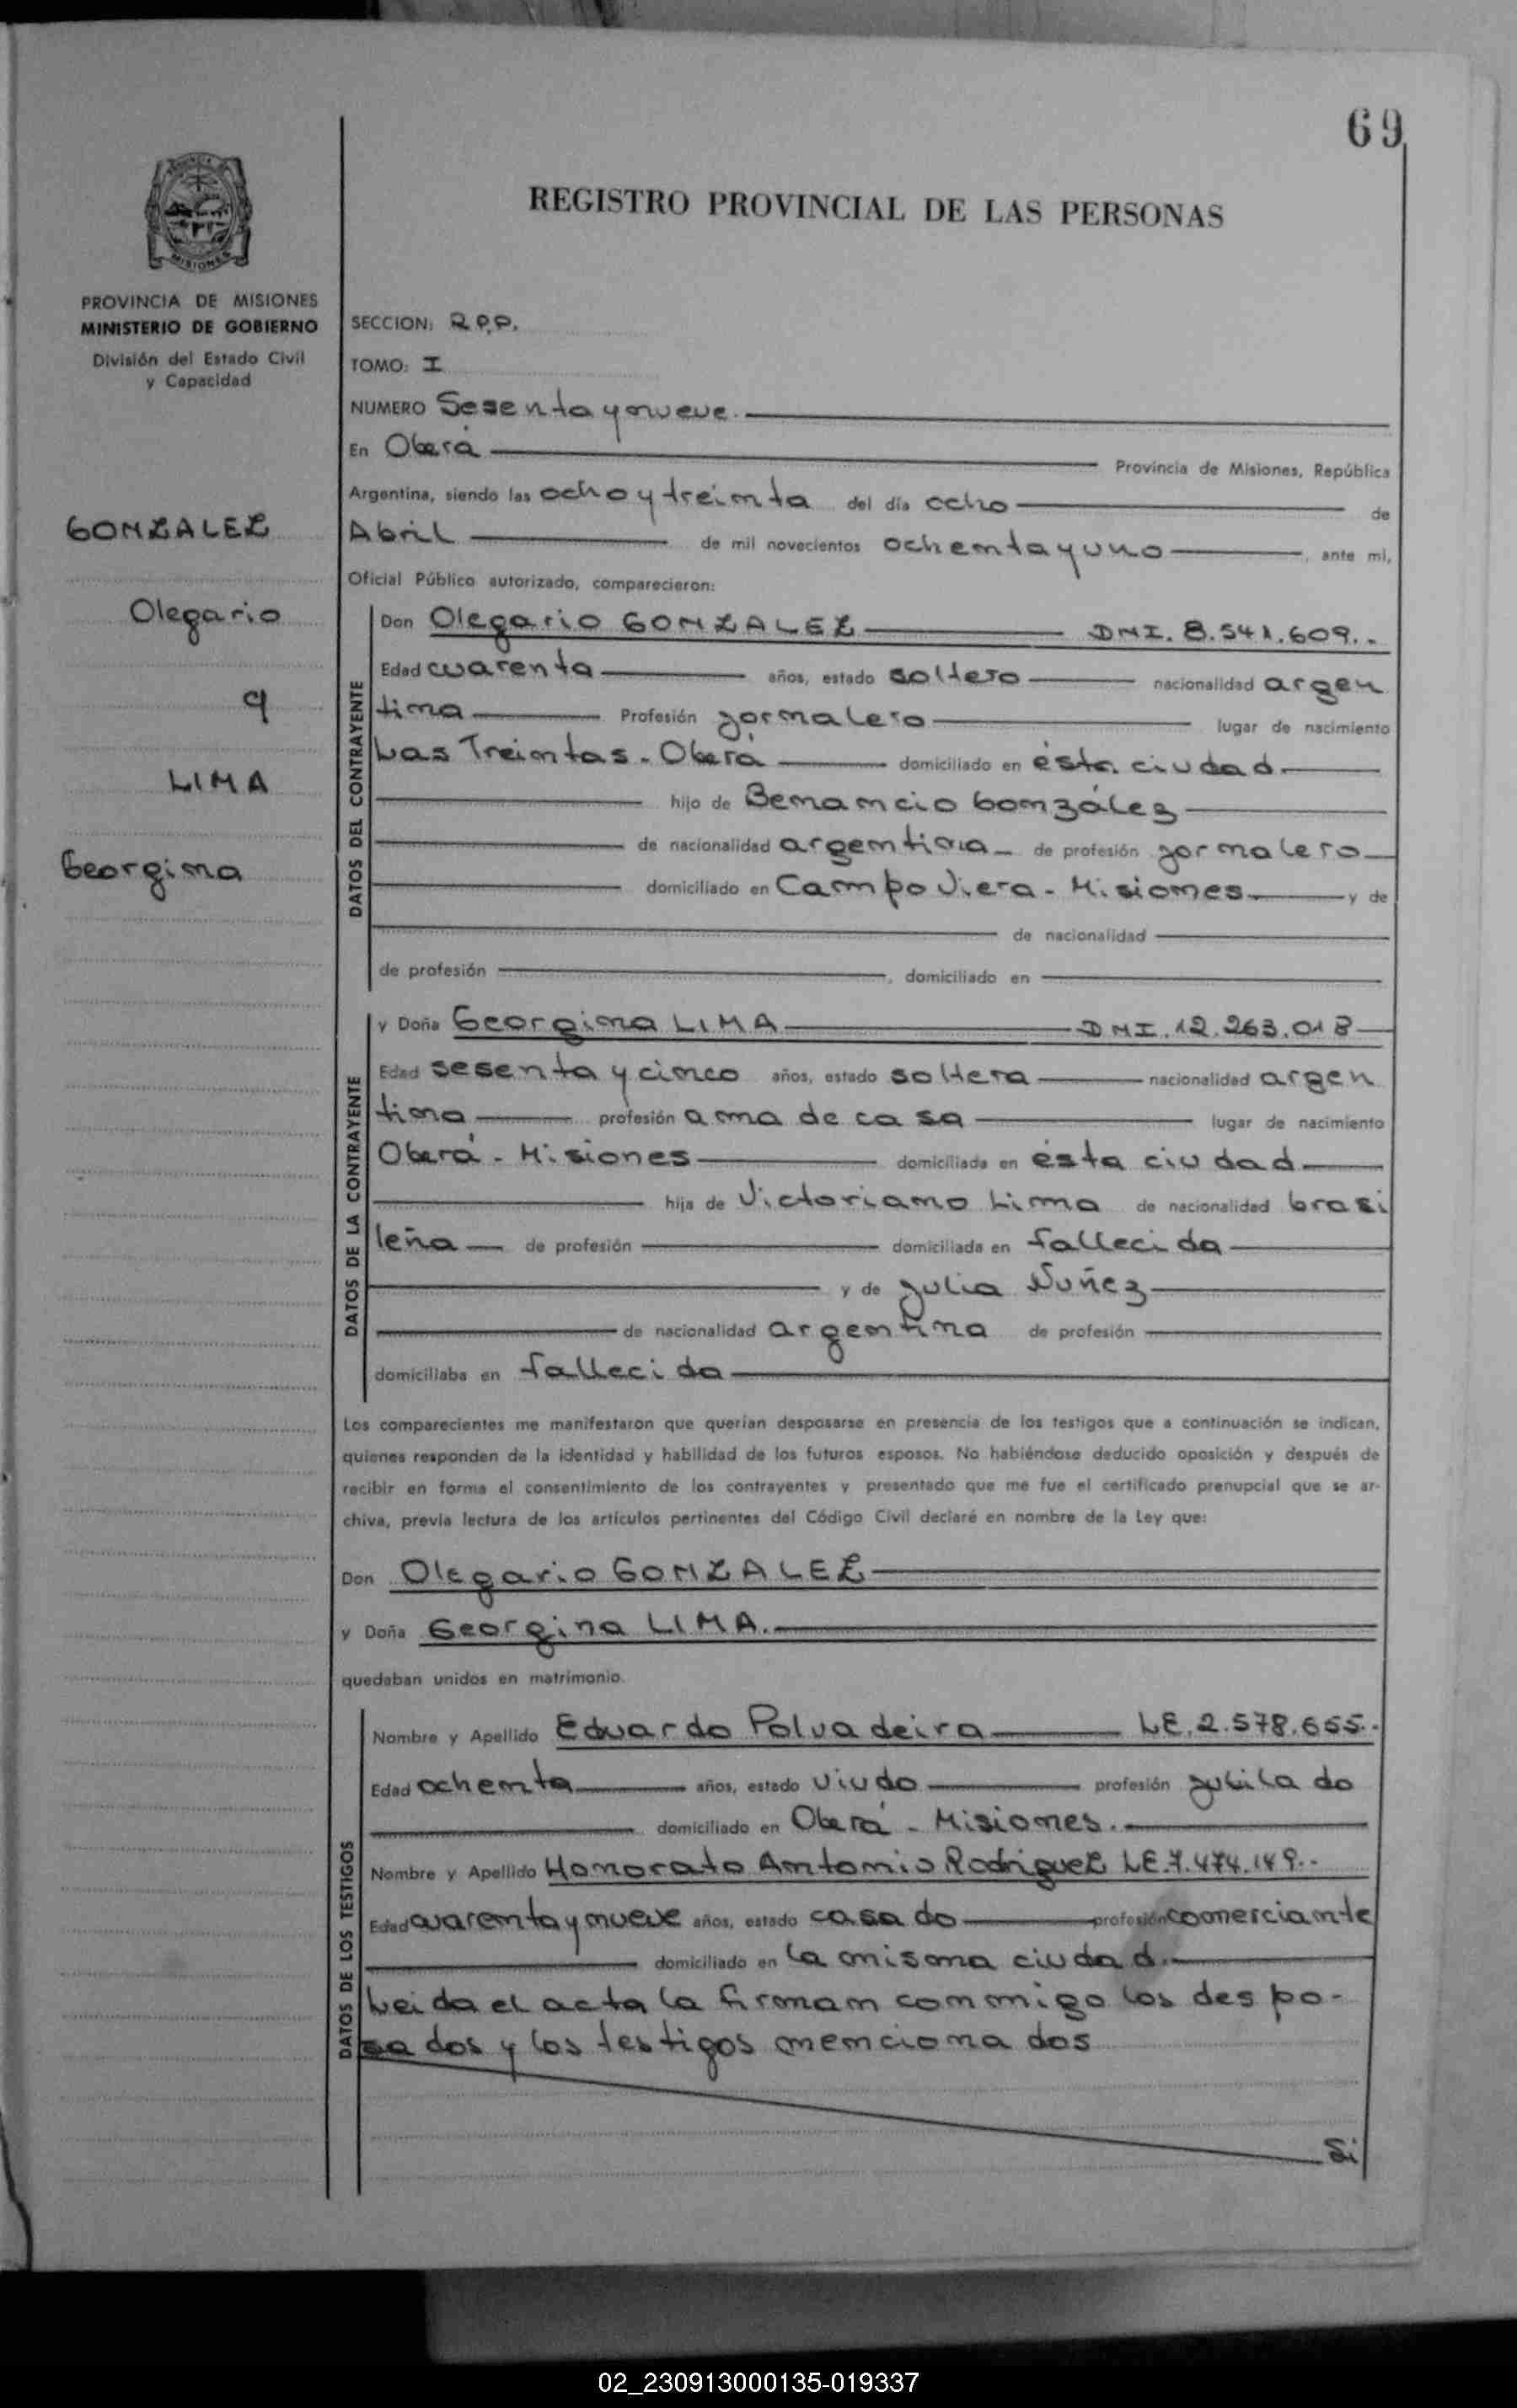 69
REGISTRO PROVINCIAL DE LAS PERSONAS
PROVINCIA DE MISIONES
MINISTERIO DE GOBIERNO
División del Estado Civil
y Capacidad
GONZALEZ
Olegario
y
LIMA
Georgina
SECCION: R.P.P.
TOMO: I
NUMERO Sesenta y nueve.
En Oberá Provincia de Misiones, República
Argentina, siendo las ocho y treinta del día ocho de
Abril de mil novecientos ochenta y uno, ante mí,
Oficial Público autorizado, comparecieron:
DATOS DEL CONTRAYENTE
Don Olegario GONZALEZ DNI. 8.541.609.-
Edad cuarenta años, estado soltero nacionalidad argen
tina Profesión jornalero lugar de nacimiento
Las Treintas - Oberá domiciliado en ésta ciudad
hijo de Benancio González
de nacionalidad argentina de profesión jornalero
domiciliado en Campo Viera - Misiones y de
de nacionalidad
de profesión , domiciliado en
DATOS DE LA CONTRAYENTE
y Doña Georgina LIMA DNI. 12.263.018
Edad sesenta y cinco años, estado soltera nacionalidad argen
tina profesión ama de casa lugar de nacimiento
Oberá - Misiones domiciliada en ésta ciudad
hija de Victoriano Lima de nacionalidad brasi
leña de profesión domiciliada en fallecida
y de Julia Nuñez
de nacionalidad argentina de profesión
domiciliaba en fallecida
Los comparecientes me manifestaron que querían desposarse en presencia de los testigos que a continuación se indican,
quienes responden de la identidad y habilidad de los futuros esposos. No habiéndose deducido oposición y después de
recibir en forma el consentimiento de los contrayentes y presentado que me fue el certificado prenupcial que se ar-
chiva, previa lectura de los artículos pertinentes del Código Civil declaré en nombre de la Ley que:
Don Olegario GONZALEZ
y Doña Georgina LIMA.
quedaban unidos en matrimonio.
DATOS DE LOS TESTIGOS
Nombre y Apellido Eduardo Polvadeira LE. 2.578.655.-
Edad ochenta años, estado viudo profesión jubilado
domiciliado en Oberá - Misiones.
Nombre y Apellido Honorato Antonio Rodriguez LE. 7.474.149.-
Edad cuarenta y nueve años, estado casado profesión comerciante
domiciliado en la misma ciudad.
Leida el acta la firman conmigo los despo-
sados y los testigos mencionados
Si
02_230913000135-019337